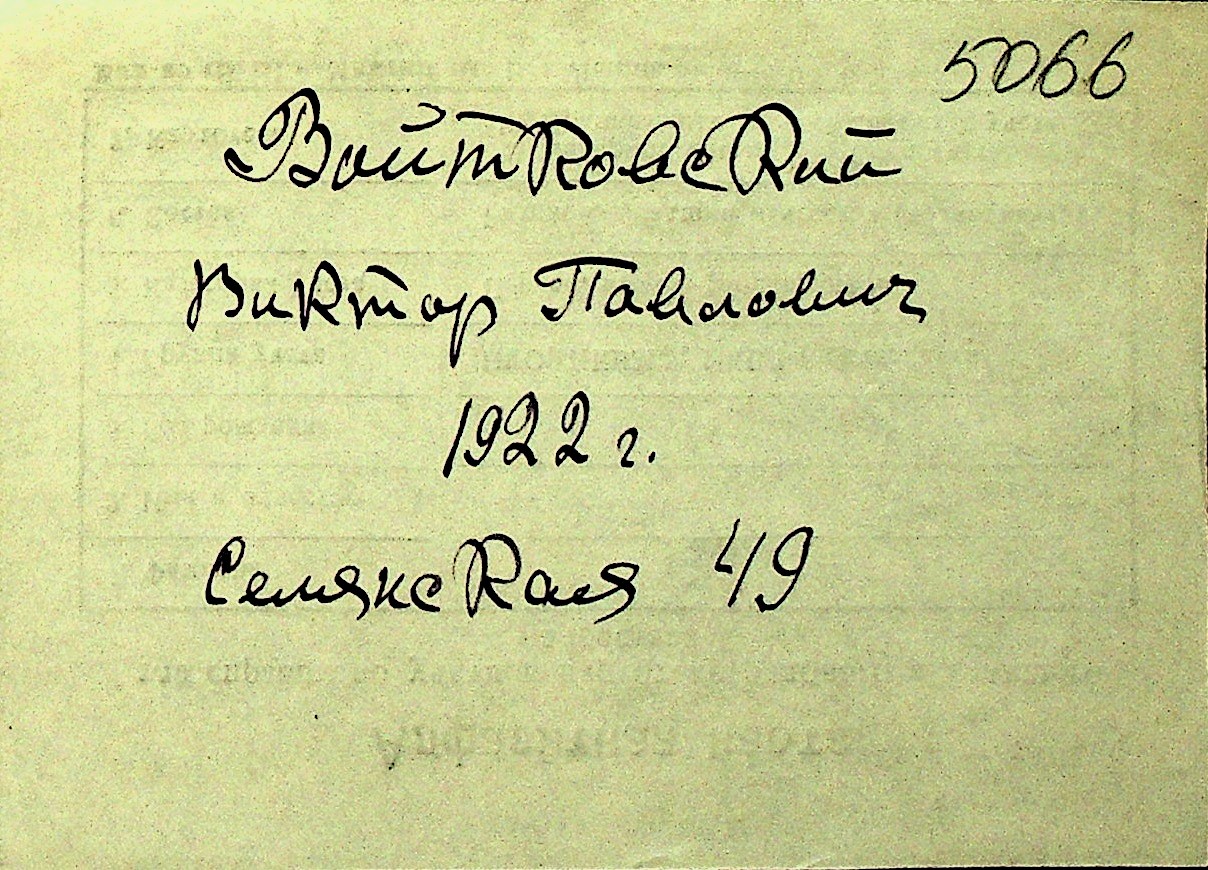 5066
Войтковский
Виктор Павлович
1922 г.
Селянская 49